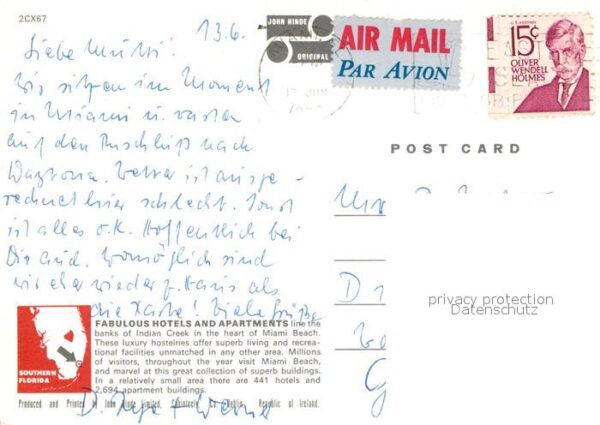 2CX67
13.6.
JOHN HINDE
ORIGINAL
AIR MAIL
PAR AVION
15¢
OLIVER
WENDELL
HOLMES
Liebe Mutti!
Wir sitzen im Moment
in Miami u. warten
auf den Anschluß nach
Daytona. Wetter ist ausge-
rechnet hier schlecht. Sonst
ist alles o.k. Hoffentlich bei
Dir auch. Womöglich sind
wir eher wieder z. Haus als
die Karte! Viele Grüße
POST CARD
privacy protection
Datenschutz
SOUTHERN
FLORIDA
FABULOUS HOTELS AND APARTMENTS line the
banks of Indian Creek in the heart of Miami Beach.
These luxury hostelries offer superb living and recrea-
tional facilities unmatched in any other area. Millions
of visitors, throughout the year visit Miami Beach,
and marvel at this great collection of superb buildings.
In a relatively small area there are 441 hotels and
2,694 apartment buildings.
Produced and Printed by John Hinde Limited, Dublin, Republic of Ireland.
+ Werner